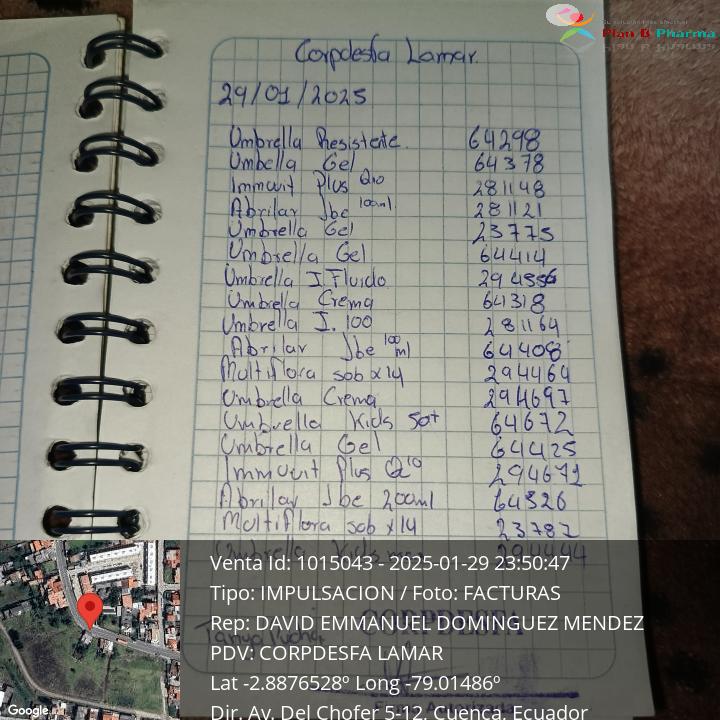 Plan B Pharma
Corpdesfa Lamar.
29/01/2025
Umbrella Resistente. 64298
Umbella Gel 64378
Immuvit Plus Q10 281148
Abrilar Jbe 100ml. 281121
Umbrella Gel 23775
Umbrella Gel 64414
Umbrella I. Fluido 294556
Umbrella Crema 64318
Umbrella I. 100 281164
Abrilar Jbe 100 ml 64408
Multiflora sob x14 294464
Umbrella Crema 294697
Umbrella Kids 50+ 64672
Umbrella Gel 64425
Immuvit Plus Q10 294671
Abrilar Jbe 200ml 64326
Multiflora sob x14 23782
Umbrella Kids 294444
Venta Id: 1015043 - 2025-01-29 23:50:47
Tipo: IMPULSACION / Foto: FACTURAS
Rep: DAVID EMMANUEL DOMINGUEZ MENDEZ
CORPDESFA
PDV: CORPDESFA LAMAR
Lat -2.8876528º Long -79.01486º
Dir. Av. Del Chofer 5-12, Cuenca, Ecuador
Google